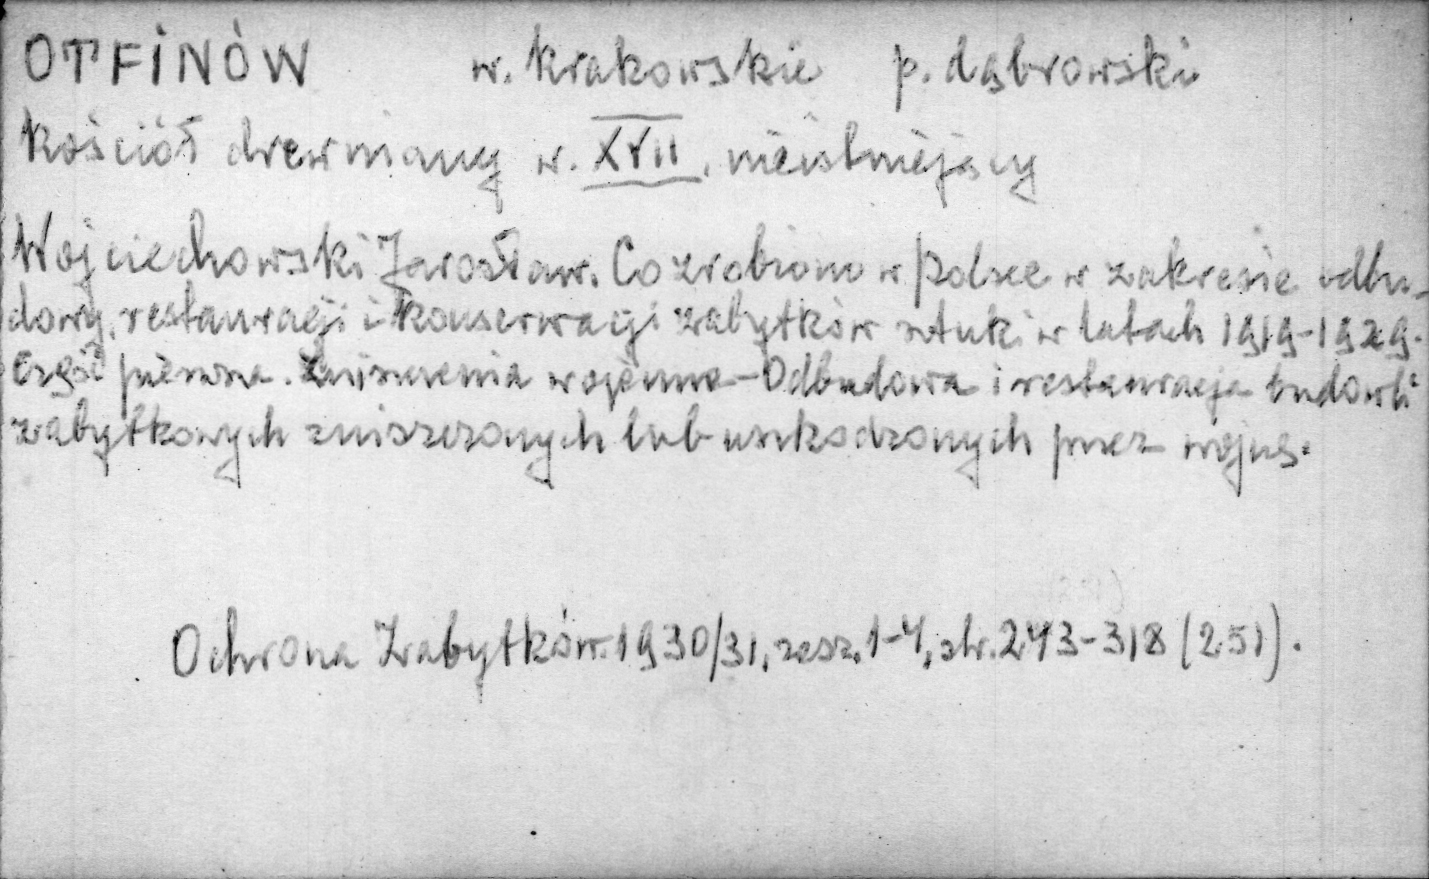 OTFINÓW w. krakowskie p. dąbrowski
Kościół drewniany w. XVII, nieistniejący
Wojciechowski Jarosław. Co zrobiono w Polsce w zakresie odbu-
dowy, restauracji i konserwacji zabytków sztuki w latach 1919-1929.
Część pierwsza. Zniszczenia wojenne - Odbudowa i restauracja budowli
zabytkowych zniszczonych lub uszkodzonych przez wojnę.
Ochrona Zabytków. 1930/31, zesz. 1-4, str. 243-318 (251).